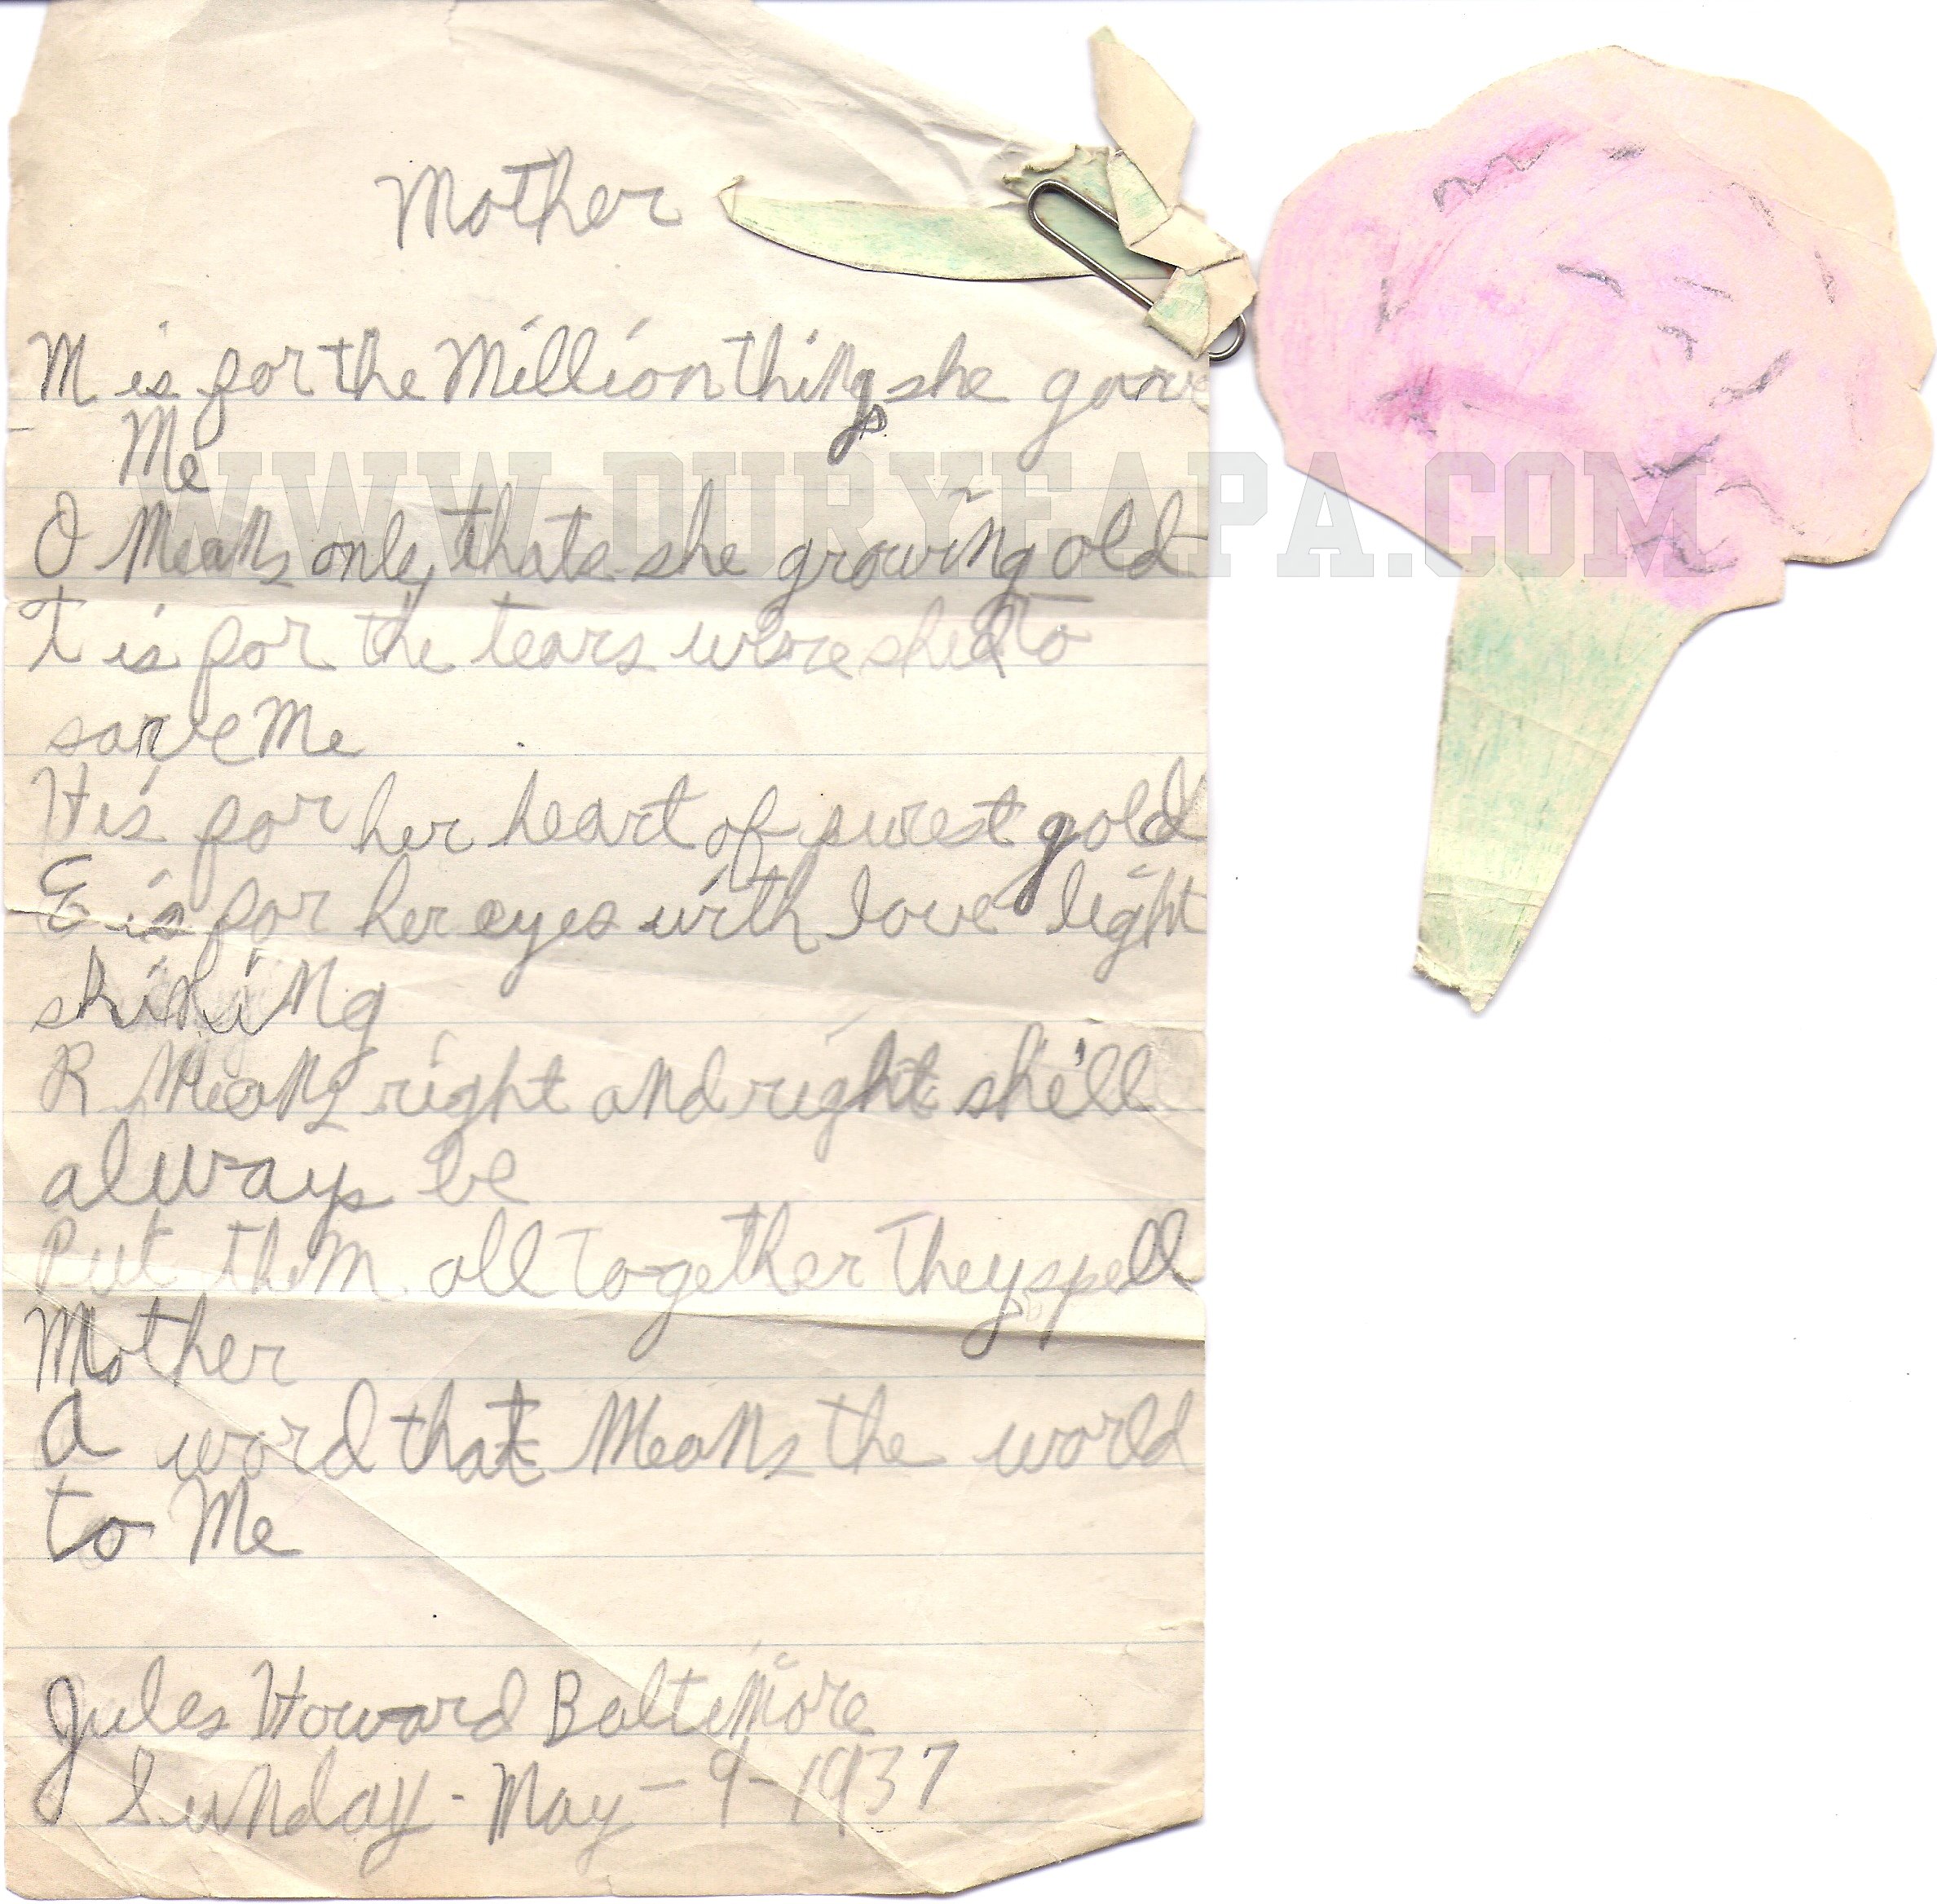 Mother
M is for the Million things she gave
Me
WWW.DURYEAPA.COM
O Means only thats she growing old
T is for the tears were shed to
save Me
H is for her heart of purest gold
E is for her eyes with love light
shining
R Means right and right she'll
always be
Put them all together They spell
Mother
A word that Means the world
to Me
Jules Howard Baltimore
Sunday - May - 9 - 1937